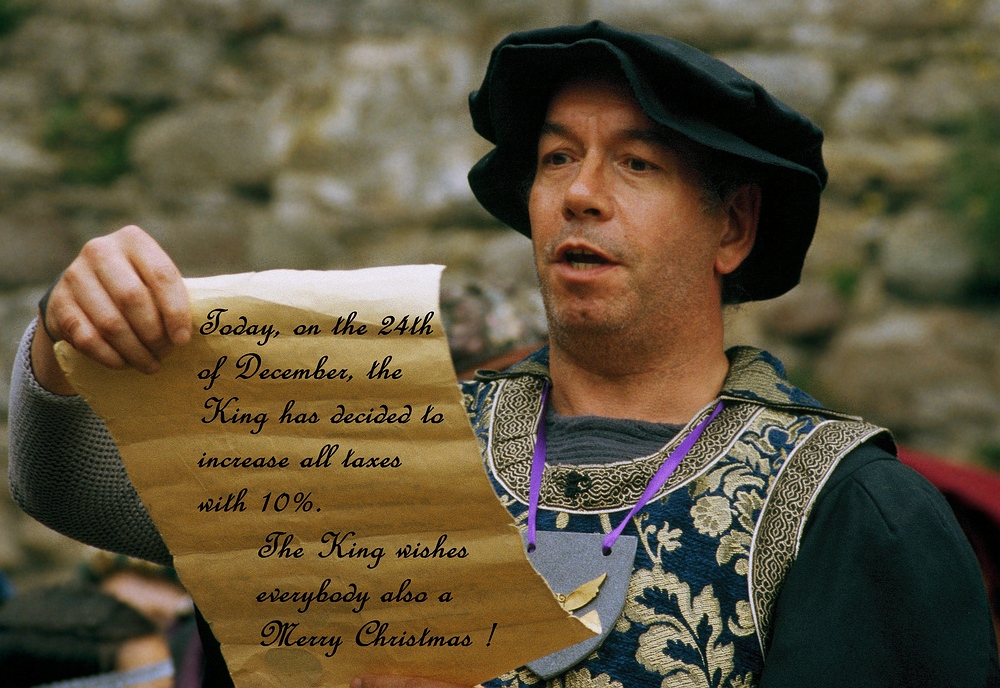 Today, on the 24th
of December, the
King has decided to
increase all taxes
with 10%.
The King wishes
everybody also a
Merry Christmas !